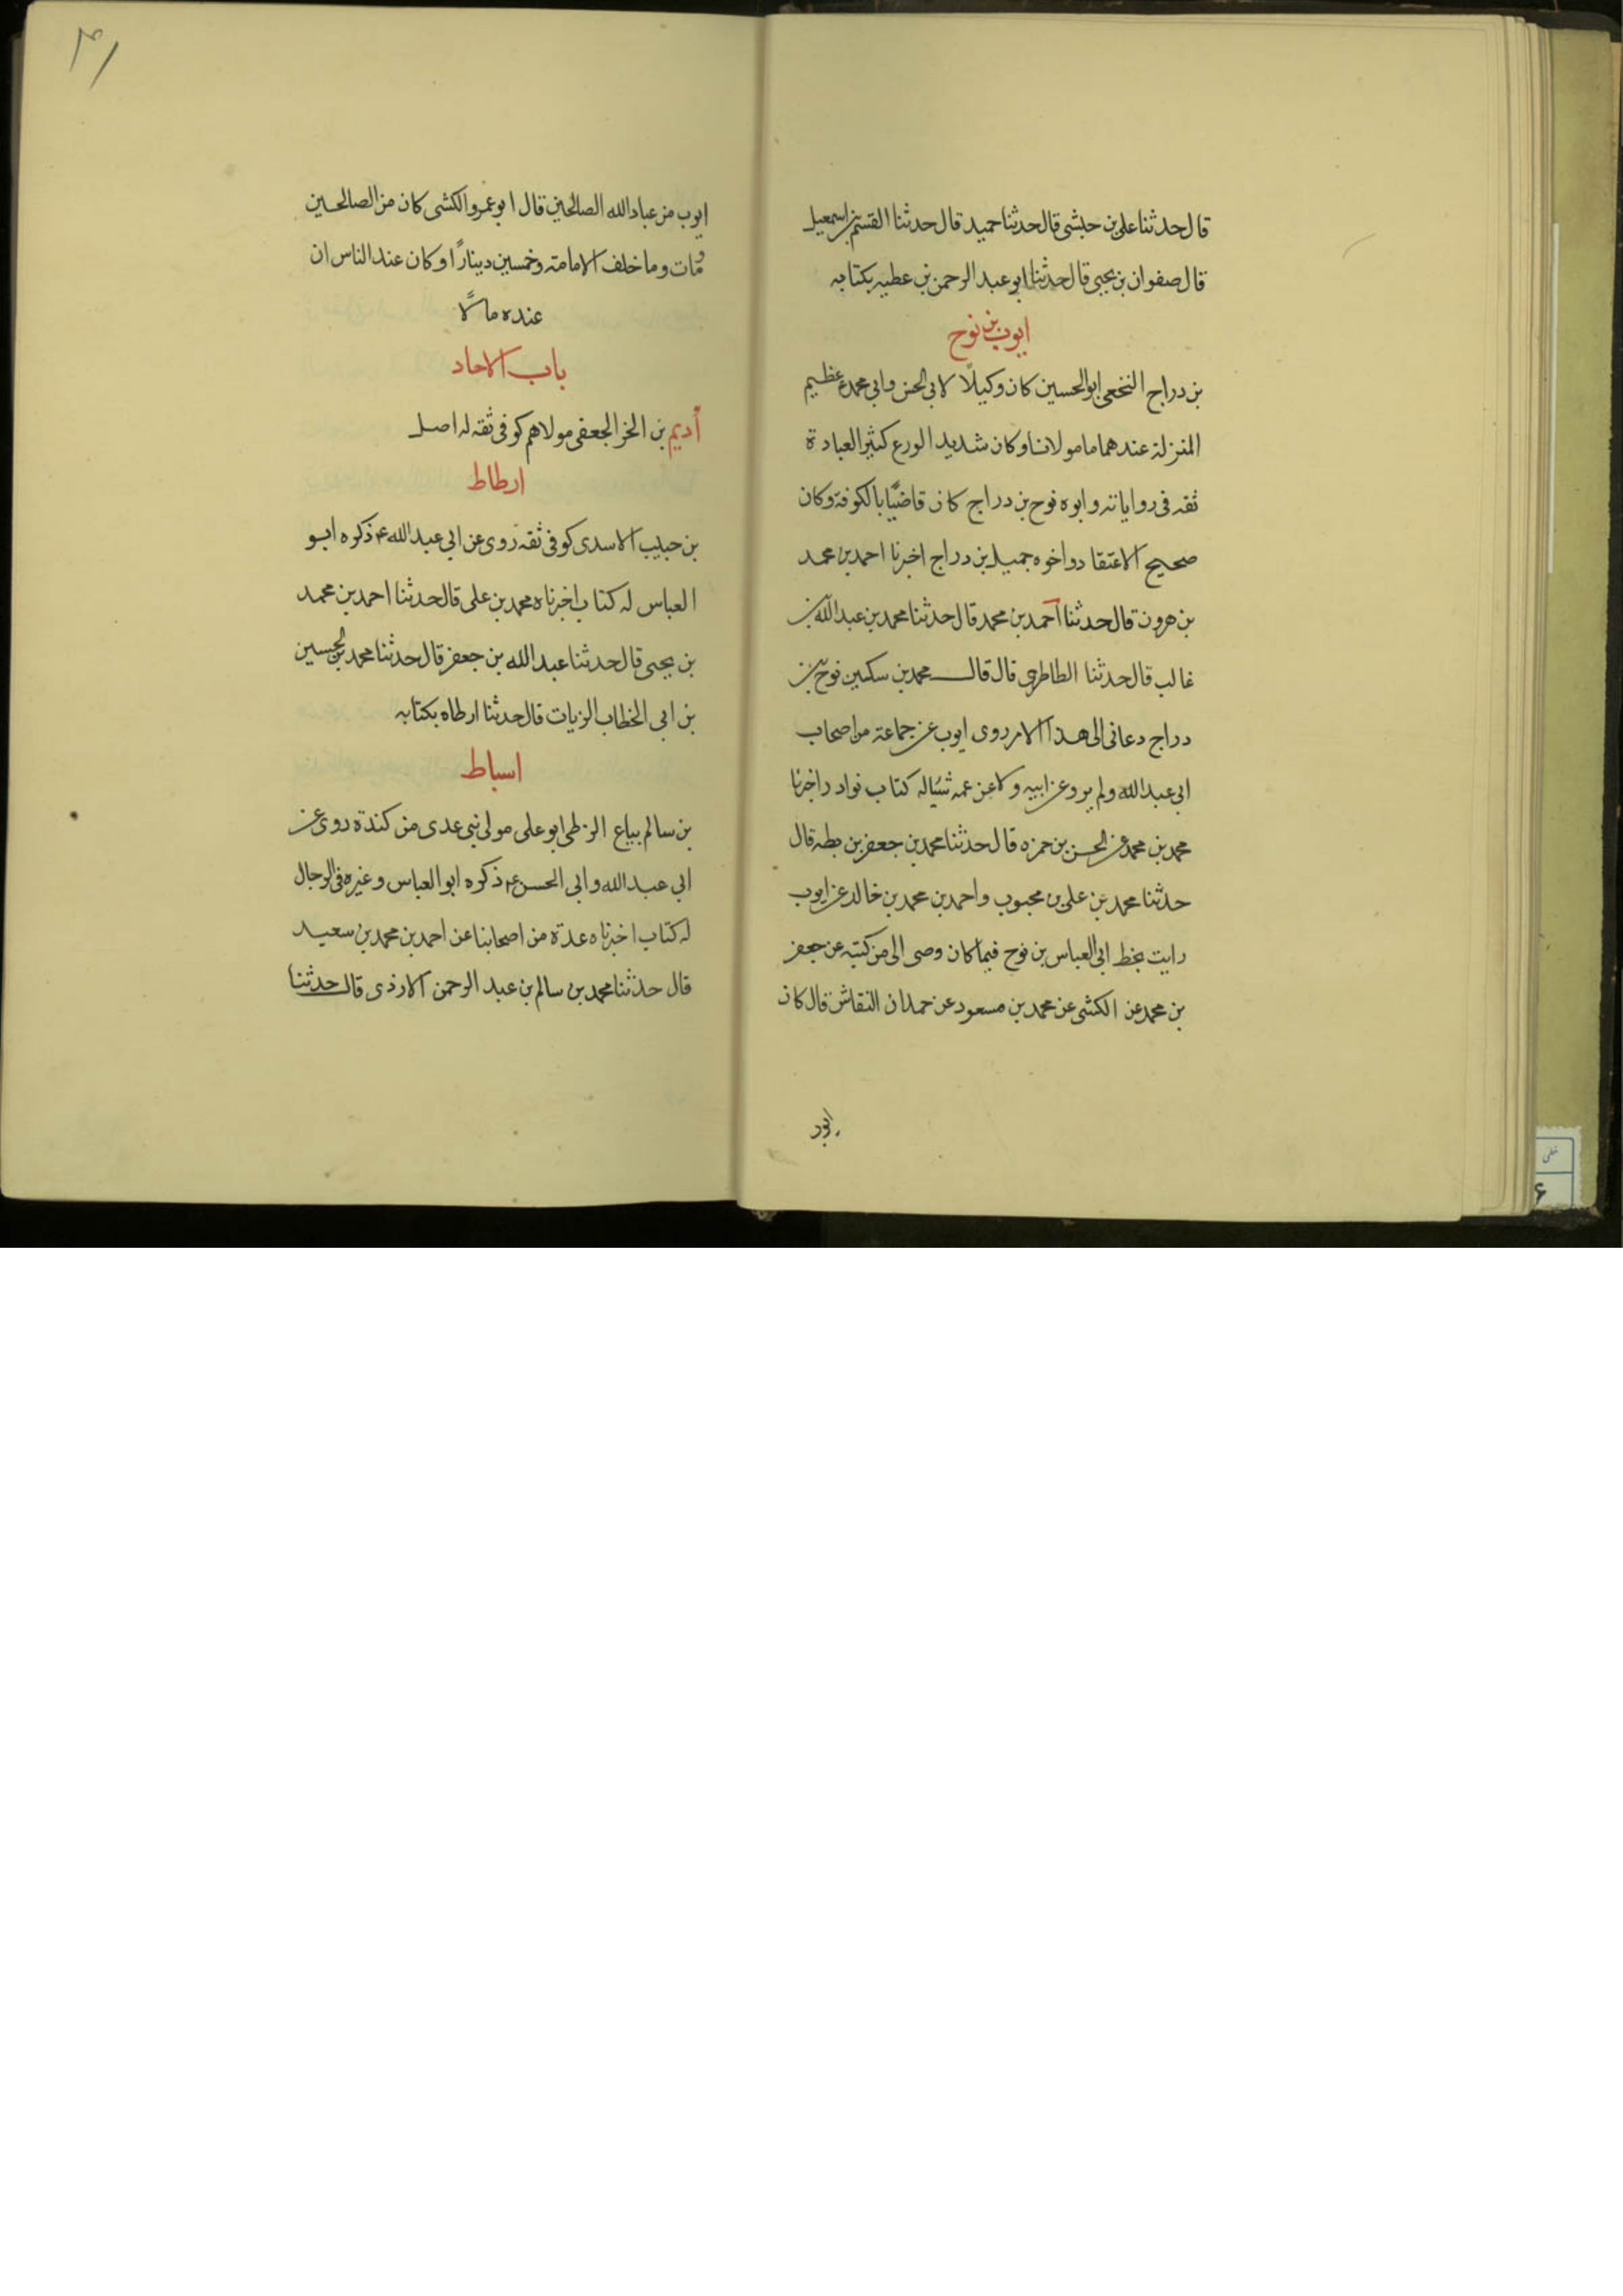 قال حدثنا علی بن حبشی قال حدثنا حمید قال حدثنا القسم بن اسمعیل
قال صفوان بن یحیی قال حدثنا ابو عبد الرحمن بن عطیه بکتابه
ایوب بن نوح
بن دراج النخعی ابو الحسین کان وکیلًا لابی الحسن وابی محمد ع عظیم
المنزلة عندهما مامولانا وکان شدید الورع کثیر العبادة
ثقه فی روایاته وابوه نوح بن دراج کان قاضیًا بالکوفة وکان
صحیح الاعتقاد واخوه جمیل بن دراج اخبرنا احمد بن محمد
بن هرون قال حدثنا احمد بن محمد قال حدثنا محمد بن عبد الله بن
غالب قال حدثنا الطاطری قال قال محمد بن سکین نوح بن
دراج دعانی الی هذا الامر روی ایوب عن جماعة من اصحاب
ابی عبد الله ولم یرو عن ابیه ولا عن عمه شیئا له کتاب نوادر اخبرنا
محمد بن محمد عن الحسن بن حمزه قال حدثنا محمد بن جعفر بن بطه قال
حدثنا محمد بن علی بن محبوب واحمد بن محمد بن خالد عن ایوب
رایت بخط ابی العباس بن نوح فیما کان وصی الی من کتبه عن جعفر
بن محمد عن الکشی عن محمد بن مسعود عن حمدان النقاش قال کان
ایوب من عباد الله الصالحین قال ابو عمرو الکشی کان من الصالحین
ومات وما خلف الا مامته وخمسین دینارًا وکان عند الناس ان
عنده مالًا
باب الاحاد
أدیم بن الخر الجعفی مولاهم کوفی ثقه له اصل
ارطاط
بن حبیب الاسدی کوفی ثقه روی عن ابی عبد الله ع ذکره ابو
العباس له کتاب اخبرناه محمد بن علی قال حدثنا احمد بن محمد
بن یحیی قال حدثنا عبد الله بن جعفر قال حدثنا محمد بن الحسین
بن ابی الخطاب الزیات قال حدثنا ارطاه بکتابه
اسباط
بن سالم بیاع الزطی ابو علی مولی بنی عدی من کندة روی عن
ابی عبد الله وابی الحسن ع ذکره ابو العباس وغیره فی الرجال
له کتاب اخبرناه عدة من اصحابنا عن احمد بن محمد بن سعید
قال حدثنا محمد بن سالم بن عبد الرحمن الازدی قال حدثنا